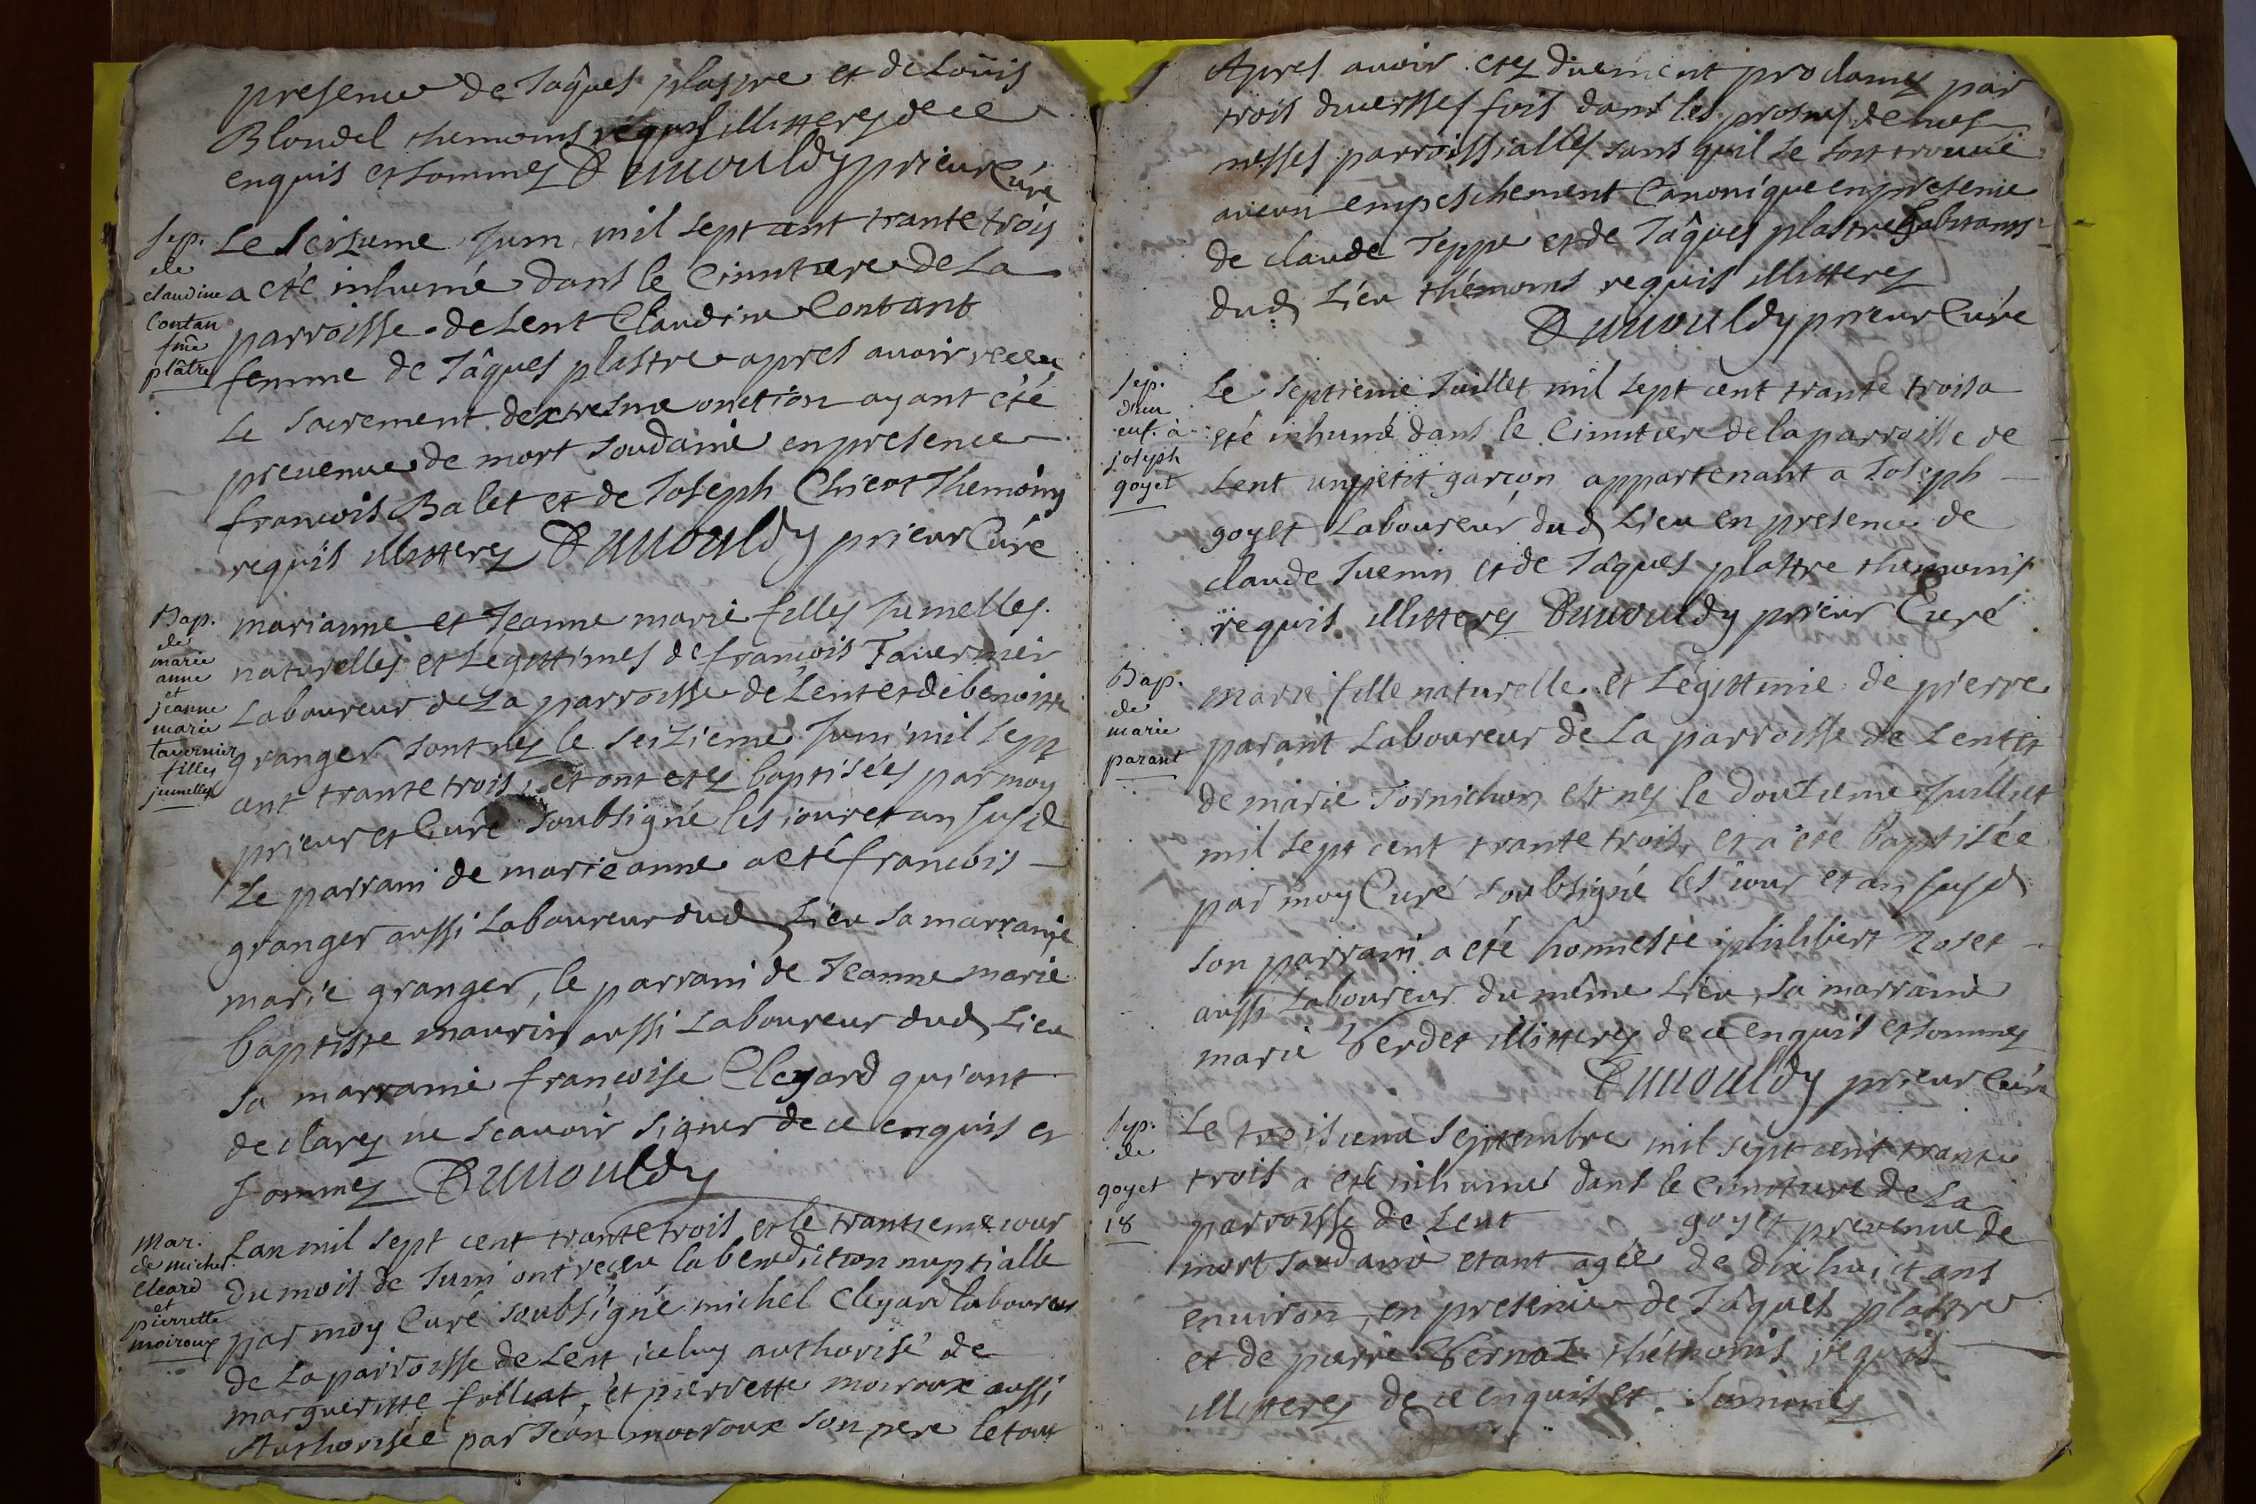 presence de Jâques plastre et de Loüis
Blondel themoins requis illitterez de ce
enquis et sommez Dunouldy prieur Curé
Sep.
de
claudine
Contan
fme
plâtre
Le seizieme Juin mil sept cent trante trois
a eté inhumé dans le Cimetiere de La
parroisse de Lent Claudine Contant
femme de Jâques plastre apres avoir receu
Le sacrement dextresme onction ayant eté
prevenue de mort soudaine en presence
francois Balet et de Joseph Themoins
requis illitterez Dunouldy prieur Curé
Bap.
de
marie
anne
et
jeanne
marie
tavernier
filles
jumelles
marianne et Jeanne marie filles Jumelles
naturelles et Legittimes de francois Tavernier
Laboureur de La parroisse de Lent et de benoitte
granger sont nez le seizieme Juin mil sept
cent trante trois, et ont etez baptisées par moy
prieur et Curé soubsigné les jour et an susd
Le parrain de marie anne a eté francois
granger aussi Laboureur dud Lieu sa marraine
marie granger, le parrain de Jeanne marie
baptiste maurin aussi Laboureur dud Lieu
sa marraine francoise Cleyard qui ont
declarez ne scavoir signer de ce enquis et
sommez Dunouldy
Mar.
de michel
Cleard
et
pierrette
moiroux
Lan mil sept cent trante trois et le trantieme jour
du mois de Juin ont receu la benediction nuptialle
par moy Curé soubsigné michel Cleyard laboureur
de La parroisse de Lent iceluy authorisé de
margueritte folliat, et pierrette moiroux aussi
Authorisée par Jean moiroux son pere le tout
Apres avoir etez duement proclamez par
trois diversses fois dans les prosnes de nos
messes parroissialles sans quil se soit trouvé
aucun empeschement Canonique en presence
de claude Teppe et de Jâques plastre habitants
dud Lieu themoins requis illitterez
Dunouldy prieur Curé
Sep.
d'un
enf. à
joseph
goyet
Le septieme Juillet mil sept cent trante trois a
eté inhumé dans le Cimetiere de la parroisse de
Lent un petit garcon appartenant a Joseph
goyet Laboureur dud Lieu en presence de
claude Juenin et de Jâques plastre themoins
requis illitterez Dunouldy prieur Curé
Bap.
de
marie
parant
Marie fille naturelle et Légittime de pierre
parant Laboureur de La parroisse de Lent et
de marie Tornichon est nez le douzieme Juillet
mil sept cent trante trois, et a eté baptisée
par moy Curé soubsigné les jour et an susd
son parrain a eté honneste philibert Roset
aussi Laboureur du même Lieu, sa marraine
marie Verdet illitterez de ce enquis et sommez
Dunouldy prieur Curé
Sep.
de
goyet
18
Le troisieme septembre mil sept cent trante
trois a eté inhumé dans le Cimetiere de La
parroisse de Lent goyet prevenue de
mort soudaine etant agée de dix huict ans
environ, en presence de Jâques plastre
et de pierre Vernaz themoins requis
illitterez de ce enquis et sommez